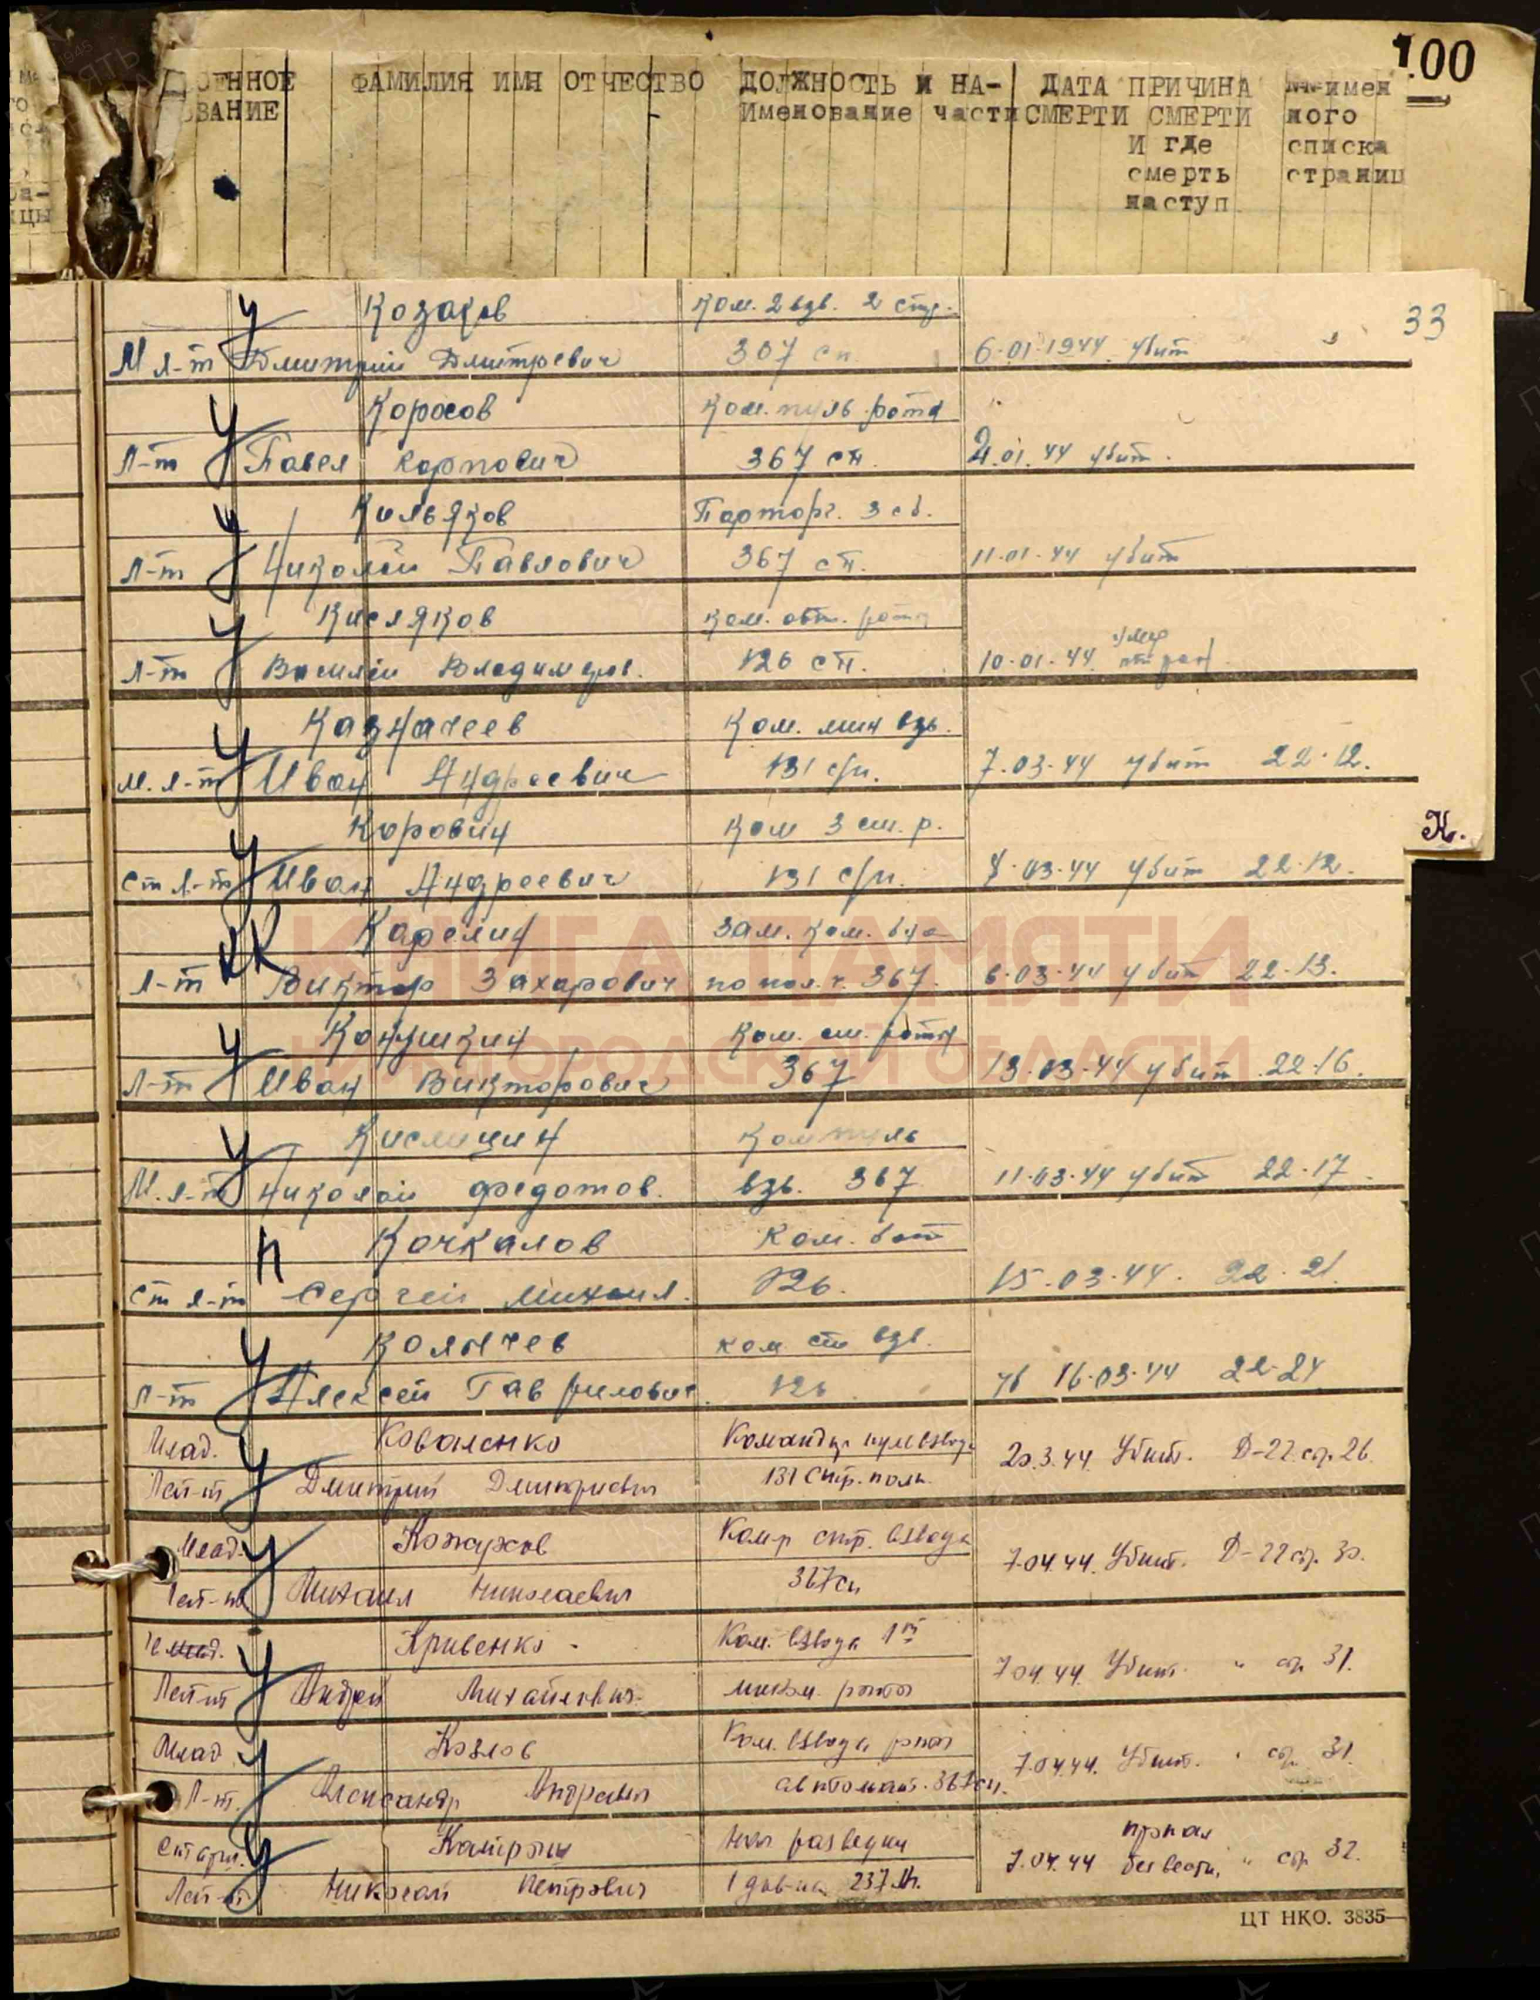 100
ВОЕННОЕ ФАМИЛИЯ ИМЯ ОТЧЕСТВО ДОЛЖНОСТЬ И НА- ДАТА ПРИЧИНА №-имен
ЗВАНИЕ именование части СМЕРТИ СМЕРТИ ного
и где списка
смерть страниц
наступ
33
У Козаков Ком. 2 взв. 2 стр.
М л-т Дмитрий Дмитревич 307 сп. 6.01.1944 убит
У Ком. пуль. рота
Л-т Павел Карпович 367 сп. 01.44 убит.
У Кильяков Парторг. 3 сб.
Л-т Николай Павлович 367 сп. 11.01.44 убит
У Кисляков Ком. рота умер
Л-т Василий Владимиров. 126 сп. 10.01.44 от ран
У Казначеев Ком. мин взв.
М. л-т Иван Андреевич 131 с/п. 7.03.44 убит 22.12.
У Коровин Ком 3 ст. р.
Ст л-т Иван Андреевич 131 с/п. 03.44 убит 22.12.
К.
КК Карелин Зам. Ком. б-на
Л-т Виктор Захарович по пол. ч. 367. 6.03.44 убит 22-13.
У Конушкин Ком. роты
Л-т Иван Викторович 367 13.03.44 убит 22.16.
У Кислицин Ком пуль
М. л-т Николай Федотов. взв. 367 11.03.44 убит 22-17
П Кочкалов Ком. бат
Ст л-т Сергей Михаил. 126. 15.03.44. 22.21.
У Колычев ком взв.
Л-т Алексей Гаврилович 126 уб 16.03.44 22-24
Млад. У Коваленко Командир пул взвода
Лей-т Дмитрий Дмитриевич 131 Стр. полк. 20.3.44 Убит. Д-22 стр. 26.
Млад. У Ком-р стр. взвода
Лей-т Михаил Николаевич 367 сп 7.04.44. Убит. Д-22 стр. 30.
У Кривенко Ком. взвода 1й
Лей-т Андрей Михайлович. роты 7.04.44. Убит. " стр. 31.
Млад У Козлов Ком. взвода роты
Л-т. Александр Андреевич автомат. 367 сп. 7.04.44. Убит. " стр. 31.
Старш. У Нач разведки пропал
Лей-т Николай Петрович 1 див-на 237 7.04.44 без вести, " стр 32.
ЦТ НКО. 3835—
КНИГА ПАМЯТИ
НИЖЕГОРОДСКОЙ ОБЛАСТИ